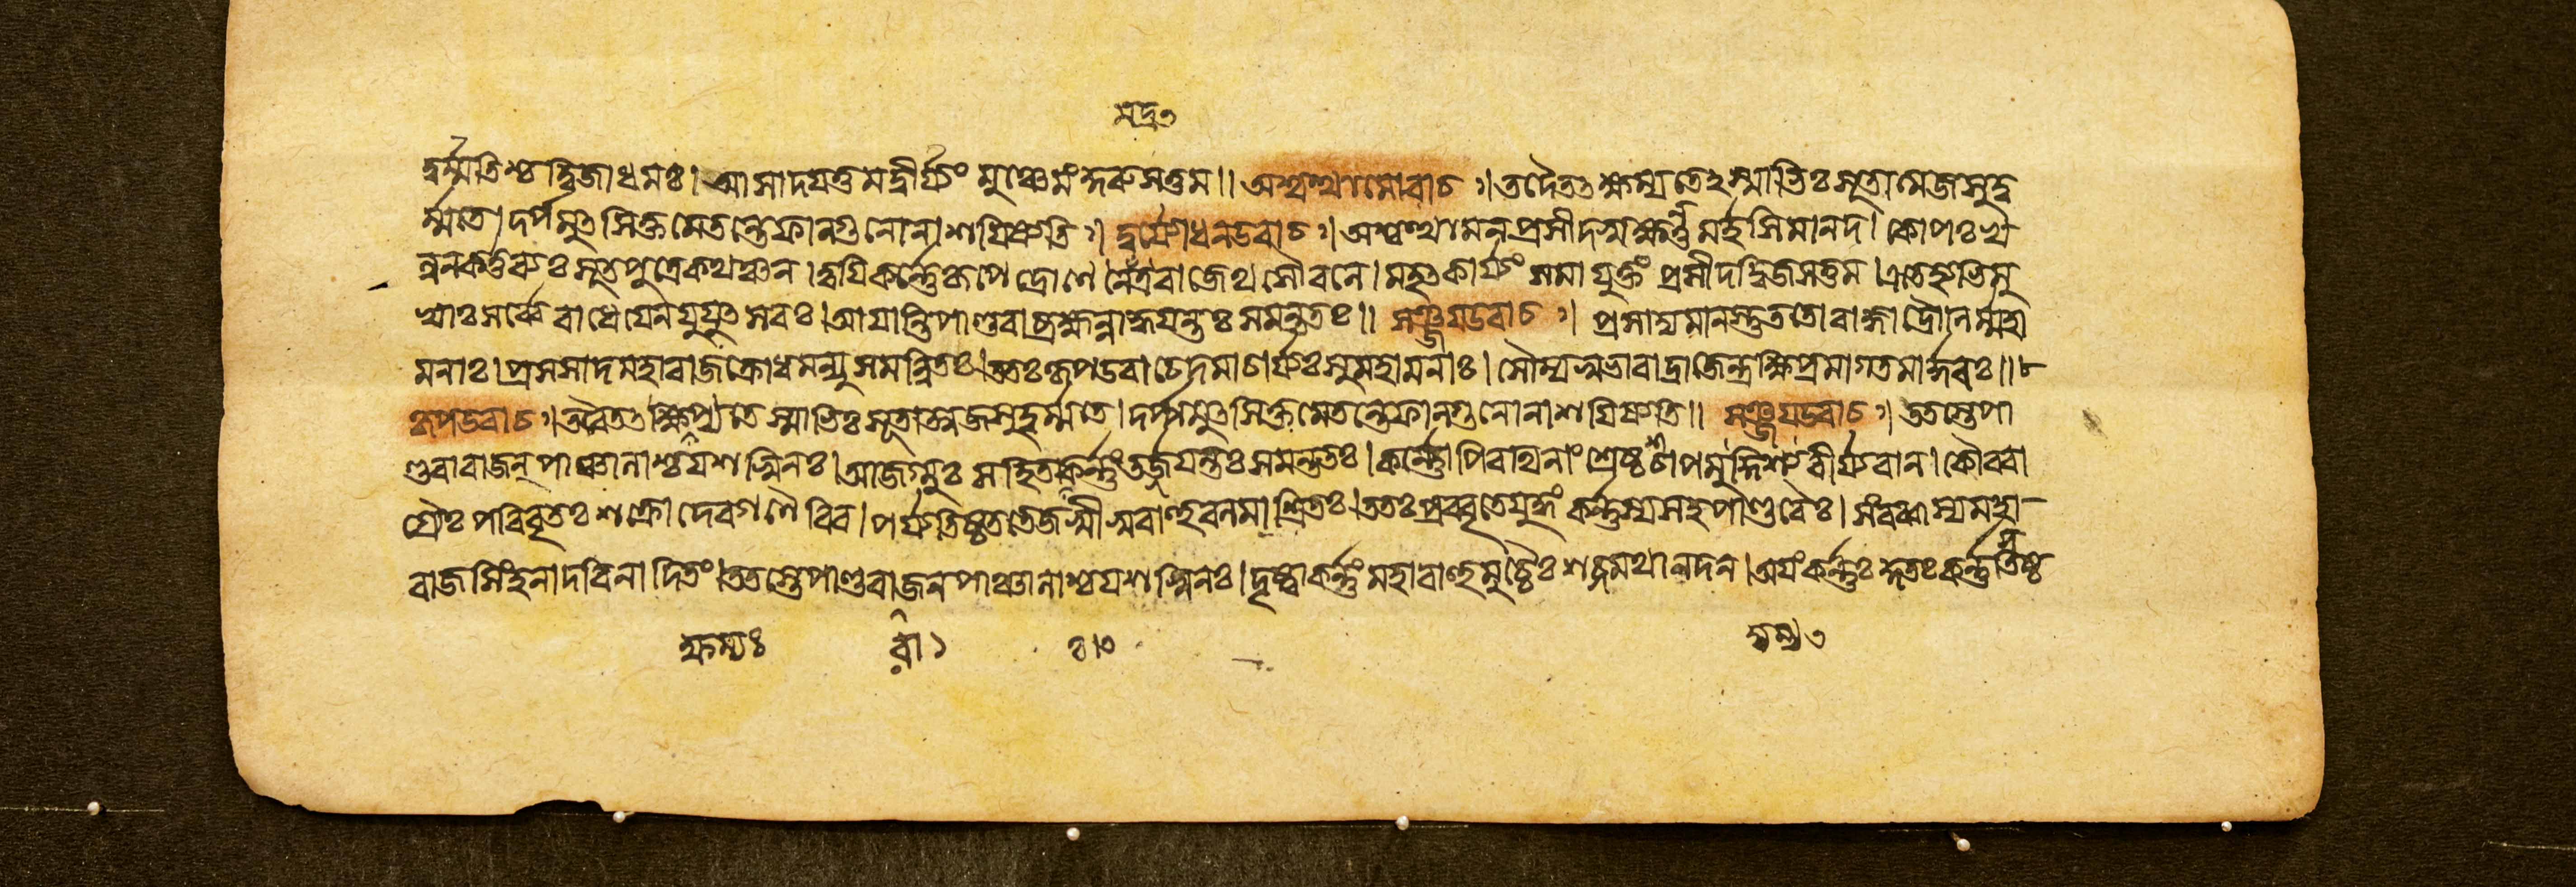 মদ্র৩
র্দুর্ম্মতিশ্চ দ্বিজাধমঃ। আসাদয়তু মদ্বীর্য্যং মুঞ্চেমং কুরুসত্তম॥ অশ্বত্থামোবাচ ঃ। তবৈতৎ ক্ষম্যতেঽস্মাভিঃ সূতাত্মজ সুদু
র্ম্মতে। দর্পমুৎসিক্তমেতন্তে ফাল্গুনো নাশয়িষ্যতি ঃ। দুর্য্যোধন উবাচ ঃ। অশ্বত্থামন্ প্রসীদস্ব ক্ষন্তুমর্হসি মানদ। কোপঃ খ
লু ন কর্ত্তব্যঃ সূতপুত্রে কথঞ্চন। ত্বয়ি কর্ণ্ণে কৃপে দ্রোণে মদ্ররাজেথ সৌবলে। মহৎকার্য্যং সমাযুক্তং প্রসীদ দ্বিজসত্তম। এতেহ্যভিমু
খাঃ সর্ব্বে রাধেয়েন যুযুৎসবঃ। আয়ান্তি পাণ্ডবা ব্রহ্মন্নাহ্বয়ন্তঃ সমন্ততঃ॥ সঞ্জয় উবাচ ঃ। প্রসাদ্যমানস্তু ততো রাজ্ঞা দ্রৌণির্ম্মহা
মনাঃ। প্রসসাদ মহারাজ ক্রোধমন্যুসমন্বিতঃ। ততঃ কৃপ উবাচেদমাচার্য্যঃ সুমহামনাঃ। সৌম্যস্বভাবাদ্রাজেন্দ্র ক্ষিপ্রমাগতমার্দ্দবঃ॥
কৃপ উবাচ ঃ। তবৈতৎ ক্ষম্যতেস্মাভিঃ সূতাত্মজ সুদুর্ম্মতে। দর্পমুৎসিক্তমেতন্তে ফাল্গুনো নাশয়িষ্যতি॥ সঞ্জয় উবাচ ঃ। ততস্তে পা
ণ্ডবা রাজন্ পাঞ্চালাশ্চ যশস্বিনঃ। আজগ্মুঃ সহিতাঃ কর্ণ্ণং তর্জ্জয়ন্তঃ সমন্ততঃ। কর্ণ্ণোপি রথিনাং শ্রেষ্ঠশ্চাপমুদ্যম্য বীর্য্যবান্। কৌরবা
গ্র্যৈঃ পরিবৃতঃ শক্রো দেবগণৈরিব। পর্য্যতিষ্ঠত তেজস্বী স্ববাহুবলমাশ্রিতঃ। ততঃ প্রববৃতে যুদ্ধং কর্ণ্ণস্য সহ পাণ্ডবৈঃ। সংরব্ধস্য মহা
রাজ সিংহনাদবিনাদিতং। ততস্তে পাণ্ডবা রাজন্ পাঞ্চালাশ্চ যশস্বিনঃ। দৃষ্ট্বা কর্ণ্ণং মহাবাহুমুচ্চৈঃ শব্দমথানদন্। অয়ং কর্ণ্ণঃ কুতঃ কর্ণ্ণস্তিষ্ঠ
ক্ষম্যঃ